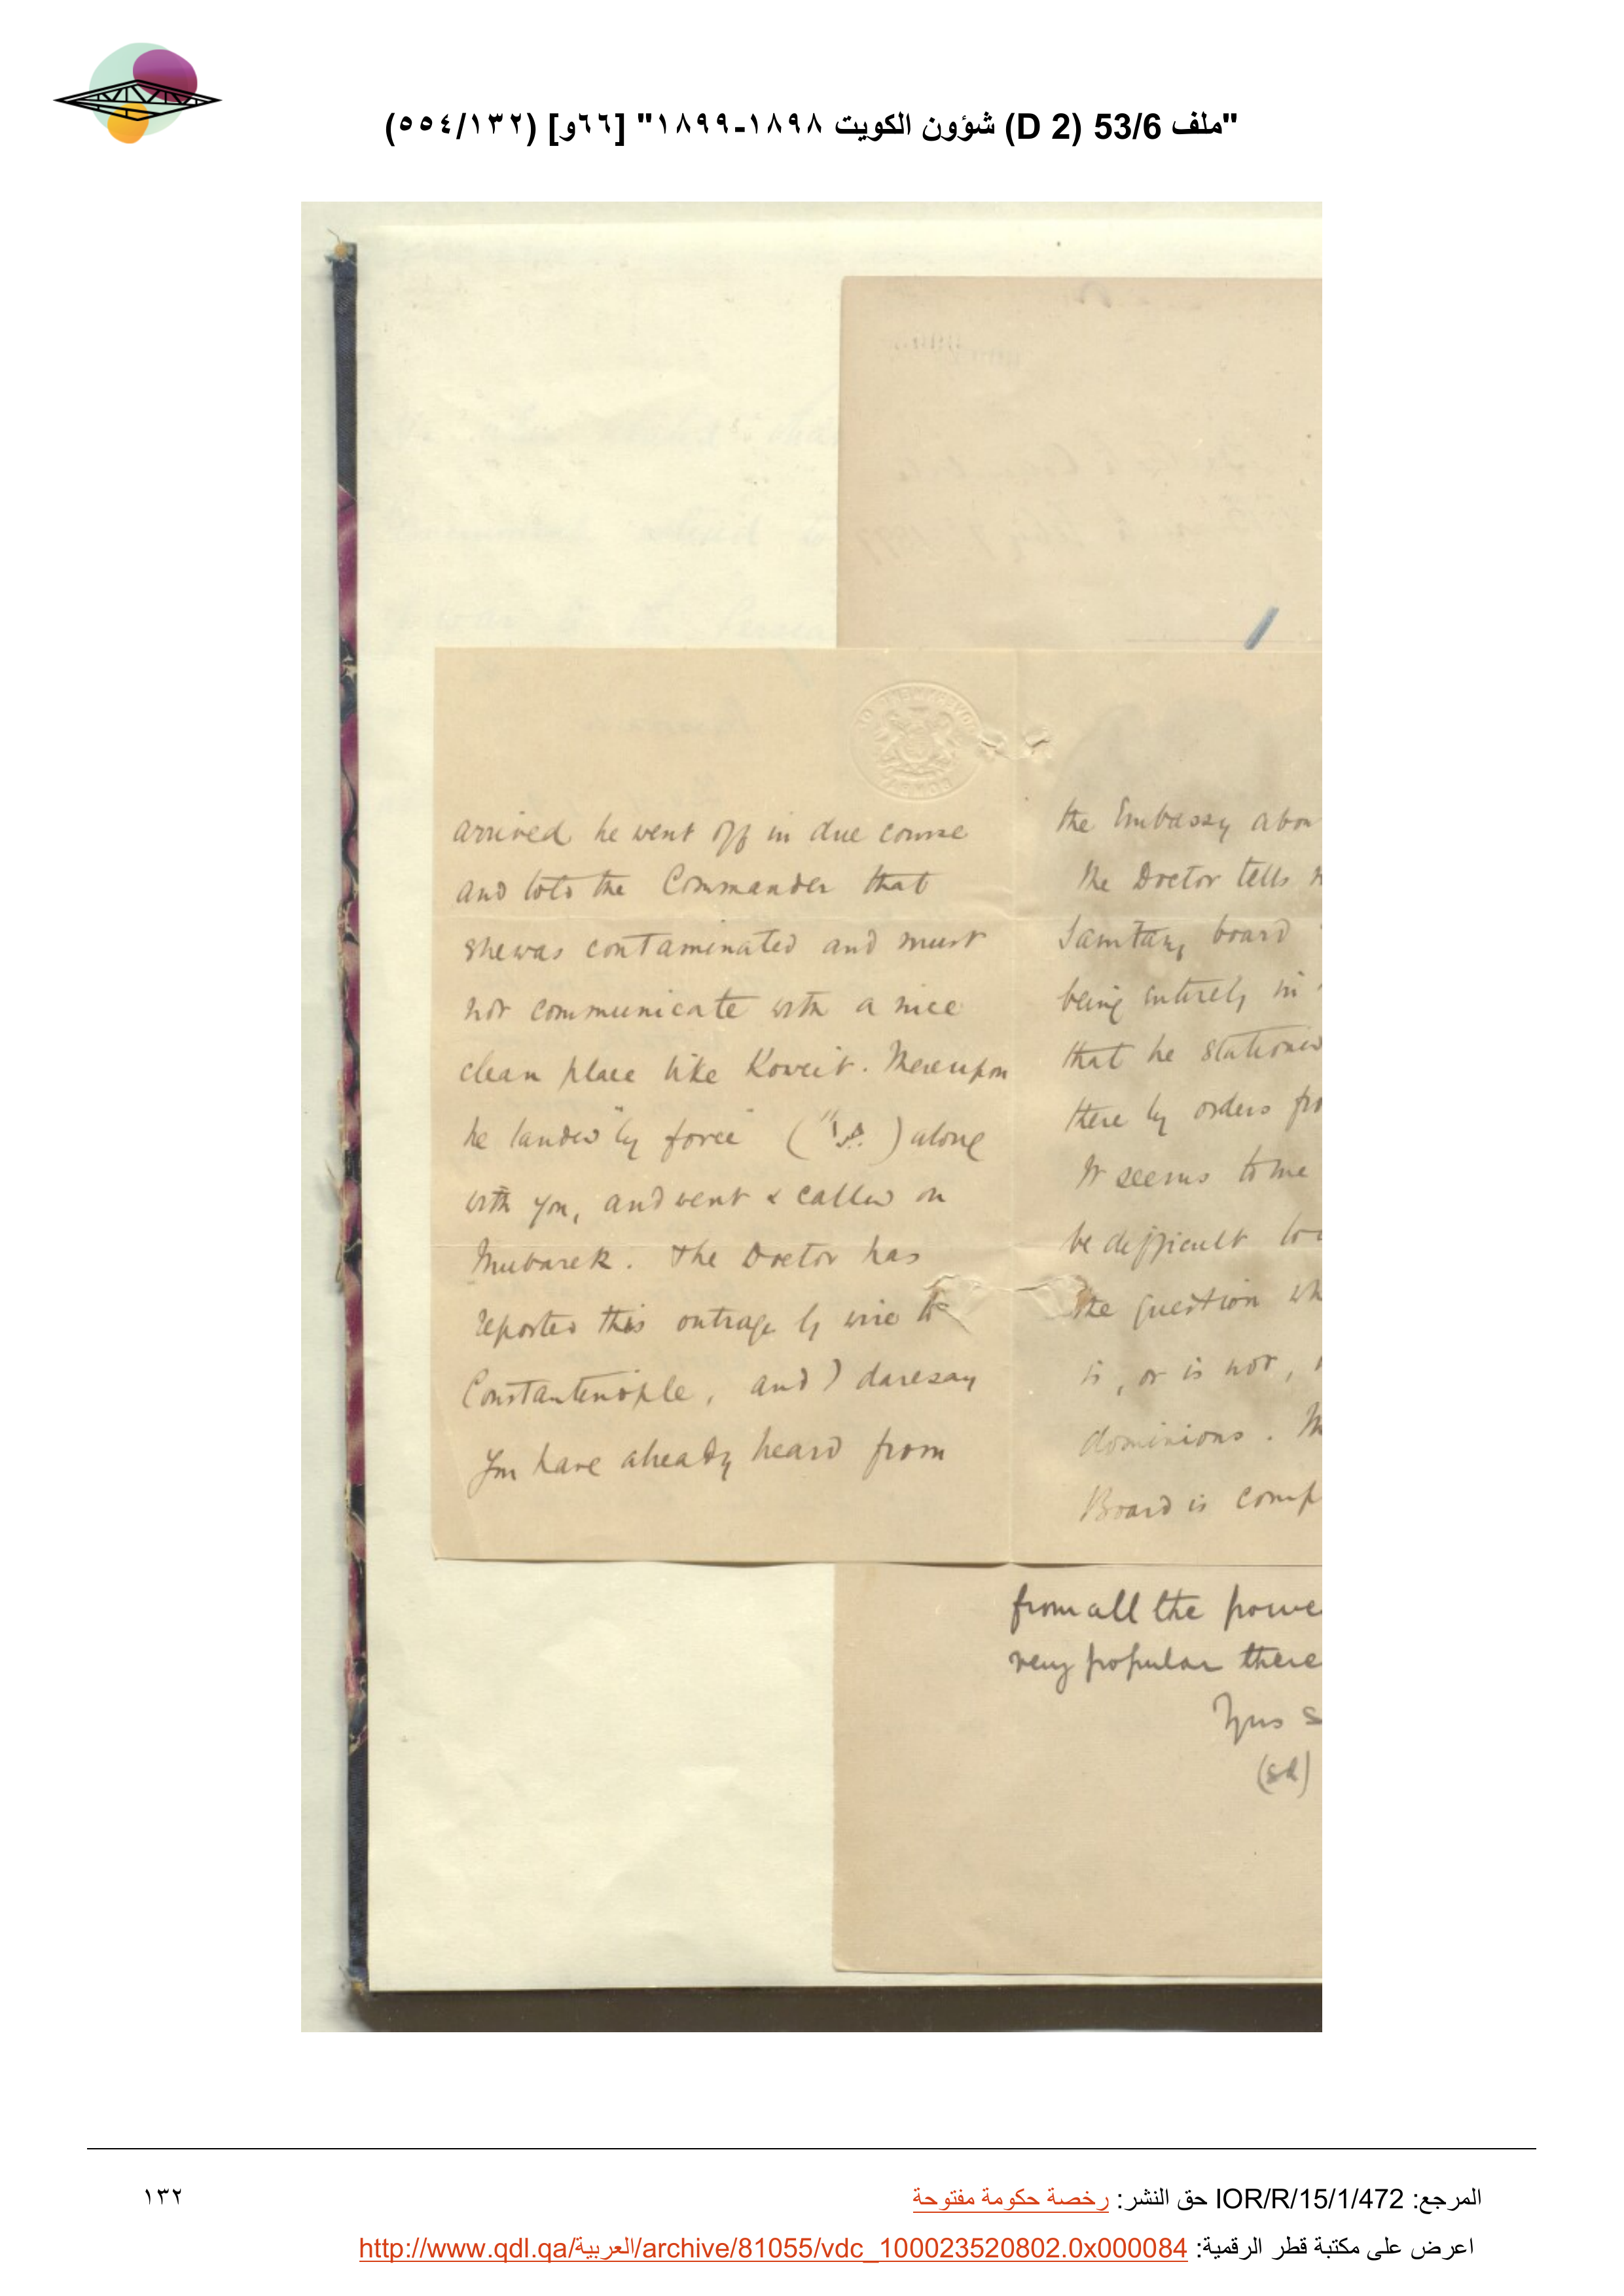 "ملف 53/6 (D 2) شؤون الكويت ١٨٩٨-١٨٩٩" [٦٦و] (٥٥٤/١٣٢)
arrived he went off in due course
and told the Commander that
she was contaminated and must
not communicate with a nice
clean place like Koweit. Thereupon
he landed "by force" ( ) along
with you, and went & called on
Mubarek. The Doctor has
reported this outrage by wire to
Constantinople, and I daresay
you have already heard from
the Embassy abou
The Doctor tells
Sanitary board
being entirely in
that he stationed
there by orders fro
It seems to me
be difficult to
the question wh
is, or is not,
dominions. M
Board is comp
from all the powe
very popular there
Yrs s
(sd)
المرجع: IOR/R/15/1/472 حق النشر: رخصة حكومة مفتوحة
١٣٢
اعرض على مكتبة قطر الرقمية: http://www.qdl.qa/العربية/archive/81055/vdc_100023520802.0x000084